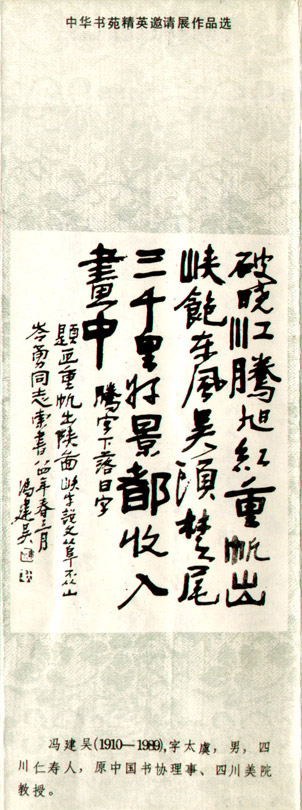 中华书苑精英邀请展作品选
破晓江騰旭红重帆出
峡飽东风吴頭楚尾
三千里好景都收入
畫中 騰字下落日字
題画重帆出陕图峡字说文从阜不从山
同志索书八四年春三月
冯建吴
冯建吴(1910—1989),字太虞，男，四
川仁寿人，原中国书协理事、四川美院
教授。